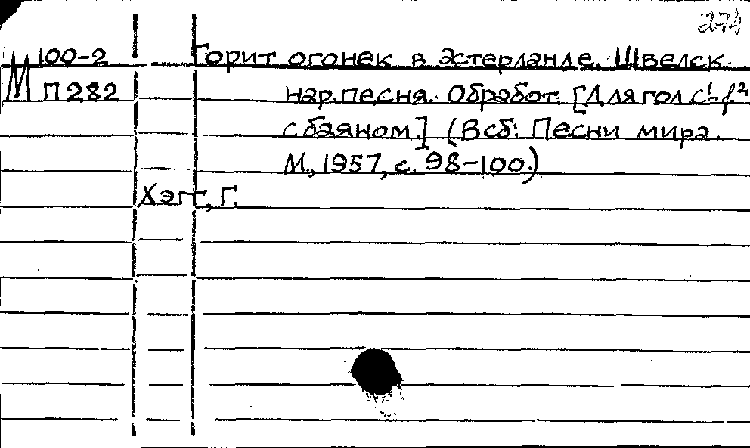 274
100-2 Горит огонек в Эстерланде. Шведск.
М П 282 нар. песня. Обработ. [Для гол. c'-f²
с баяном.] (В сб: Песни мира.
М., 1957, с. 98-100.)
Хэгг, Г.